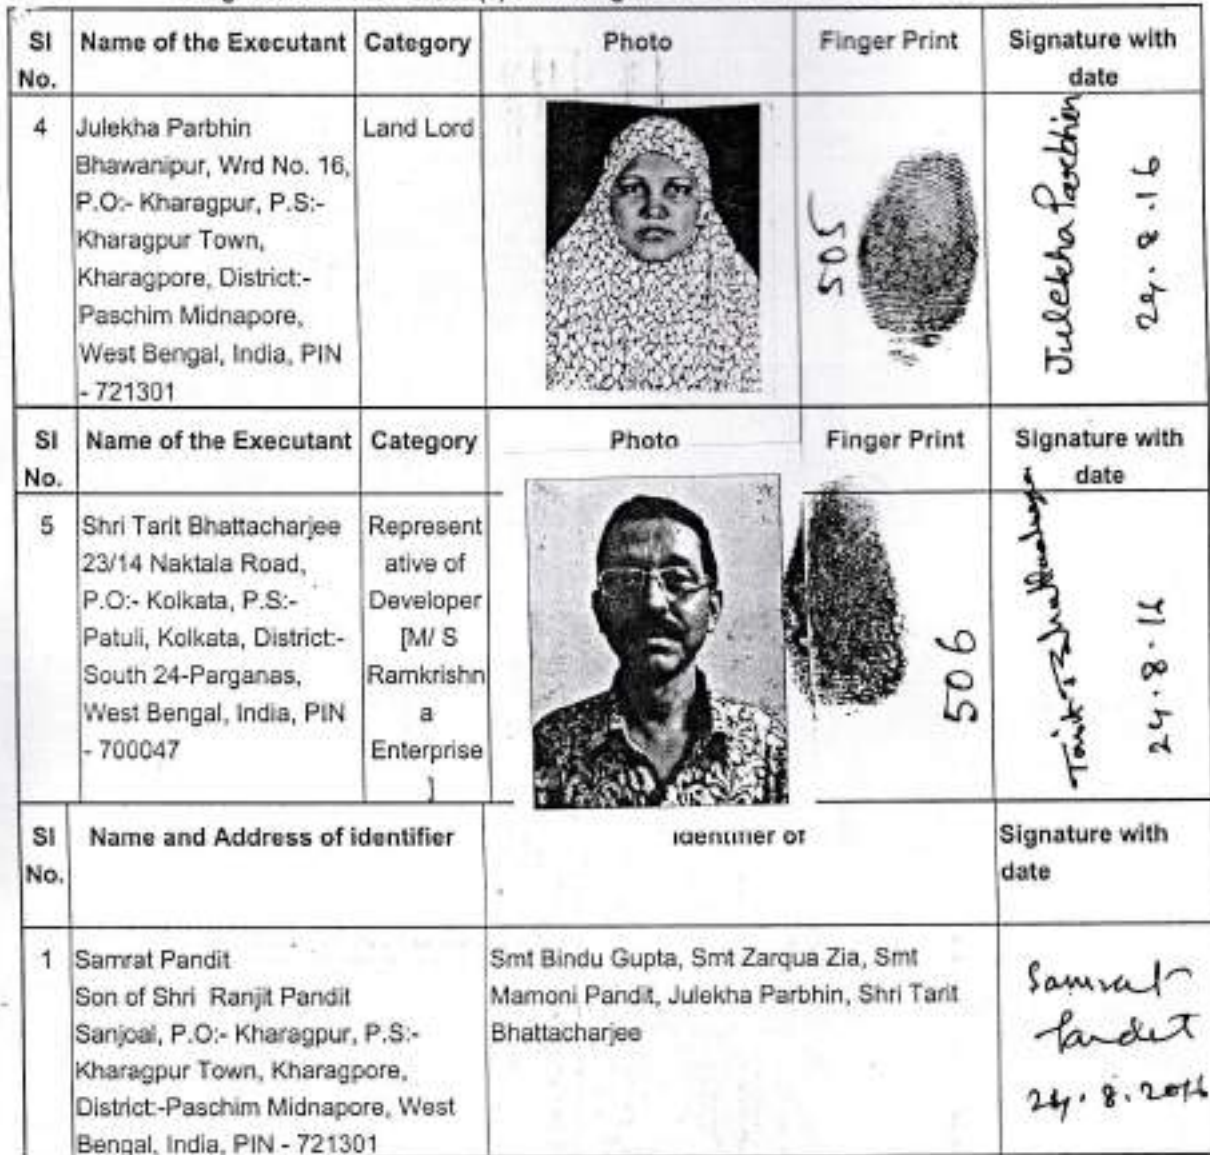 SI No. Name of the Executant Category Photo Finger Print Signature with date
4 Julekha Parbhin Land Lord
Bhawanipur, Wrd No. 16,
P.O:- Kharagpur, P.S:-
Kharagpur Town,
Kharagpore, District:-
Paschim Midnapore,
West Bengal, India, PIN
- 721301
505
Julekha Parbhin
24.8.16
SI No. Name of the Executant Category Photo Finger Print Signature with date
5 Shri Tarit Bhattacharjee
23/14 Naktala Road,
P.O:- Kolkata, P.S:-
Patuli, Kolkata, District:-
South 24-Parganas,
West Bengal, India, PIN
- 700047
Represent
ative of
Developer
[M/ S
Ramkrishn
a
Enterprise
]
506
24.8.16
SI No. Name and Address of identifier Identifier of Signature with date
1 Samrat Pandit
Son of Shri Ranjit Pandit
Sanjoal, P.O:- Kharagpur, P.S:-
Kharagpur Town, Kharagpore,
District:-Paschim Midnapore, West
Bengal, India, PIN - 721301
Smt Bindu Gupta, Smt Zarqua Zia, Smt
Mamoni Pandit, Julekha Parbhin, Shri Tarit
Bhattacharjee
Samrat
Pandit
24.8.2016